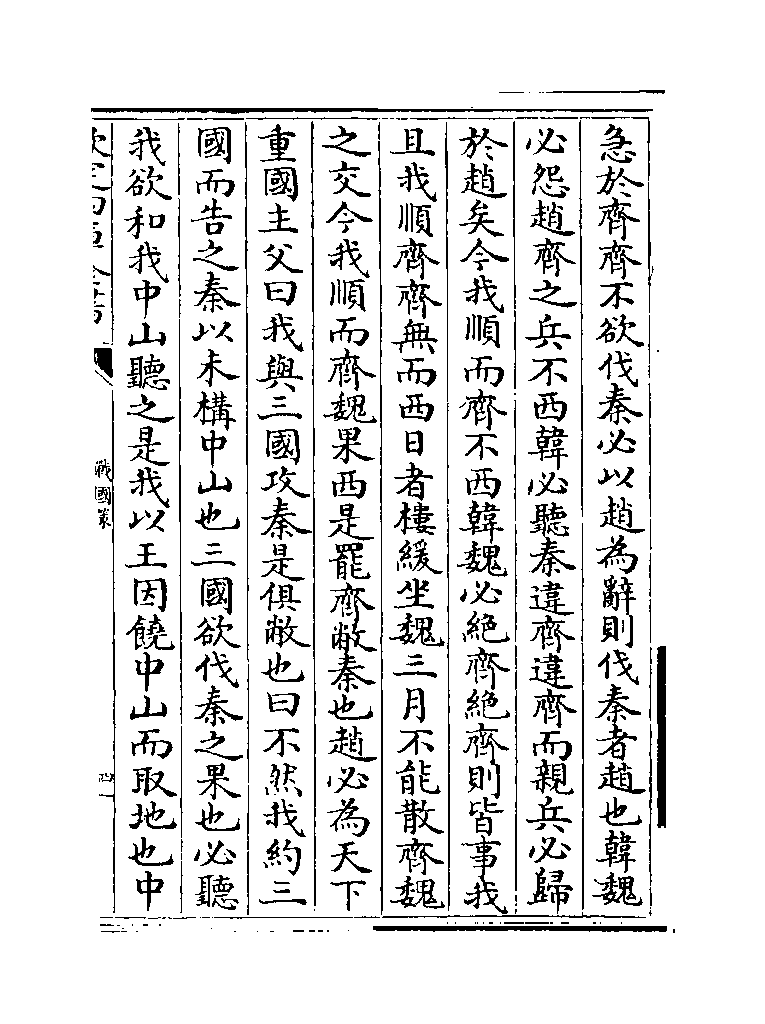 急於齊齊不欲伐秦必以趙為辭則伐秦者趙也韓魏
必怨趙齊之兵不西韓必聽秦違齊違齊而親兵必歸
於趙矣今我順而齊不西韓魏必絶齊絶齊則皆事我
且我順齊齊無而西日者樓緩坐魏三月不能散齊魏
之交今我順而齊魏果西是罷齊敝秦也趙必為天下
重國主父曰我與三國攻秦是俱敝也曰不然我約三
國而告之秦以未構中山也三國欲伐秦之果也必聽
我欲和我中山聽之是我以王因饒中山而取地也中
戰國策